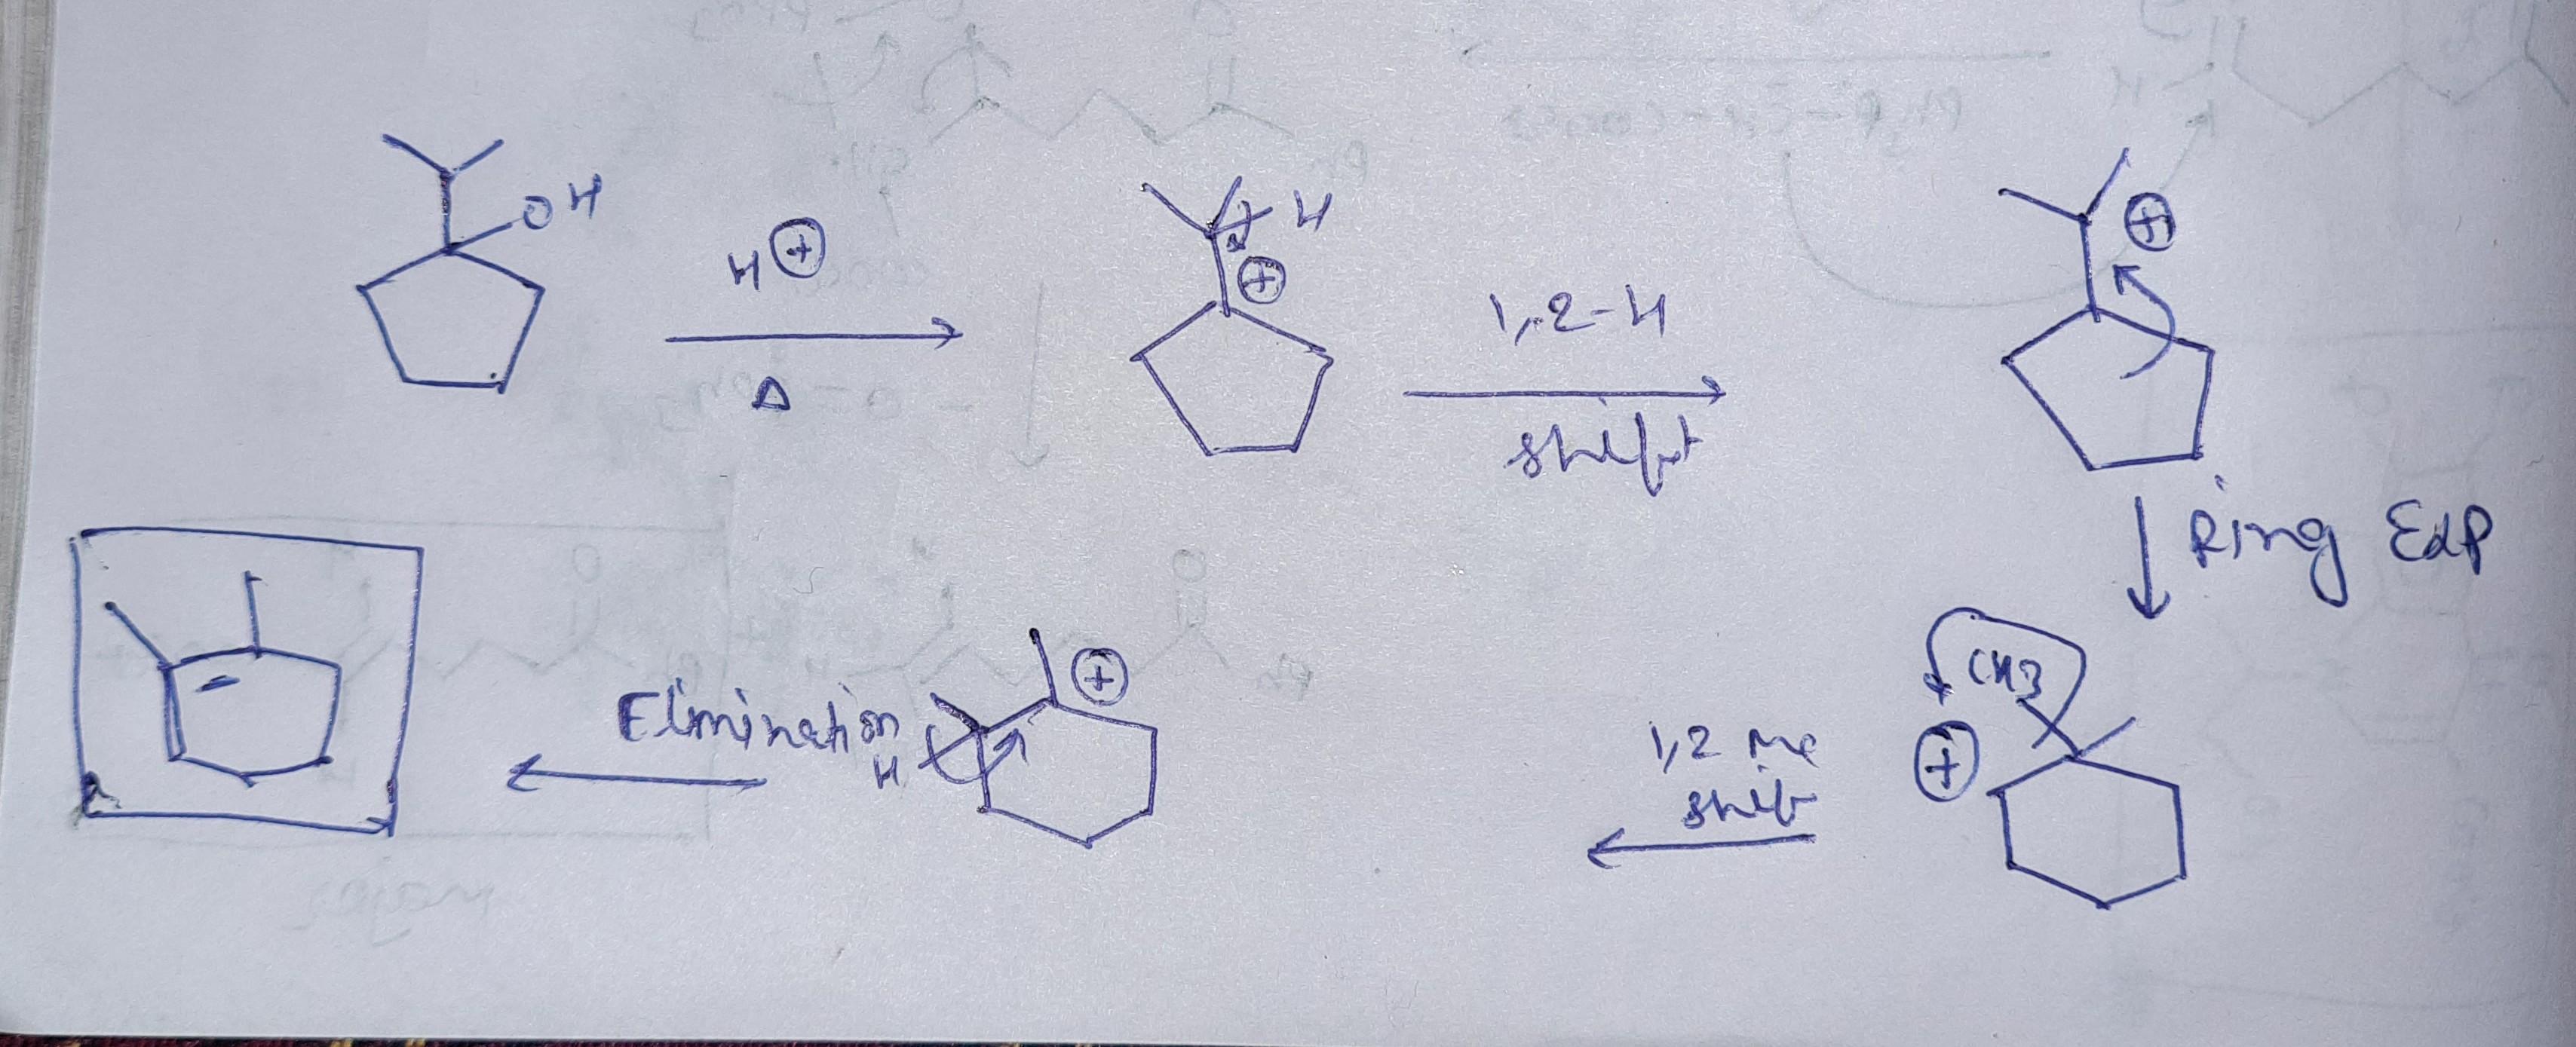 OH
H⊕
Δ
H
⊕
1,2-H
shift
⊕
Ring Exp
CH3
⊕
1,2 Me
shift
⊕
H
Elimination